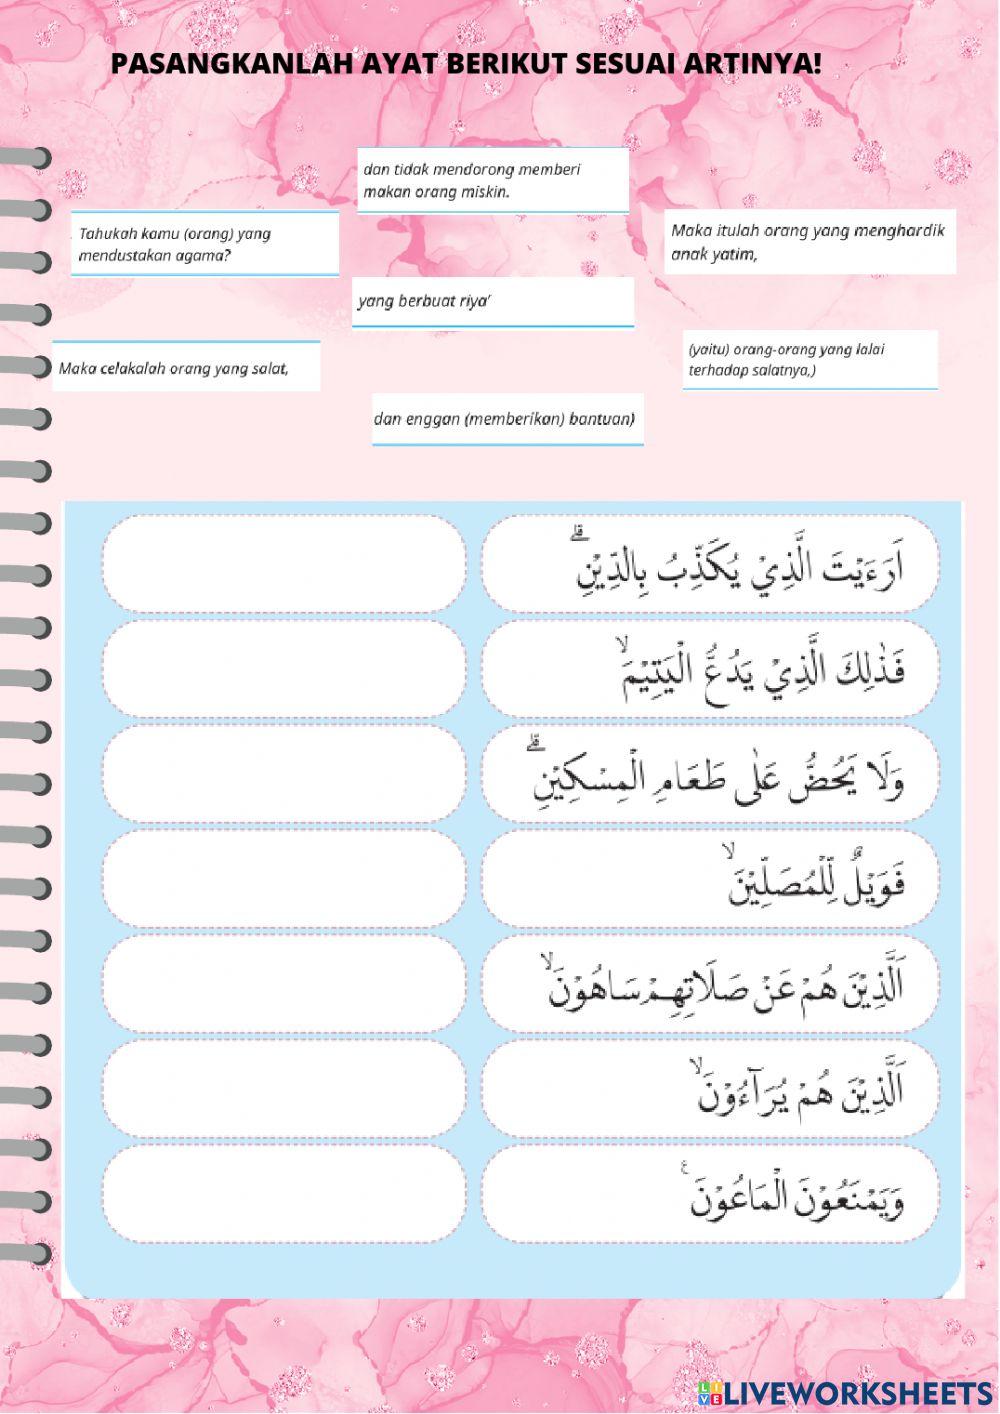 PASANGKANLAH AYAT BERIKUT SESUAI ARTINYA!
dan tidak mendorong memberi
makan orang miskin.
Tahukah kamu (orang) yang
mendustakan agama?
Maka itulah orang yang menghardik
anak yatim,
yang berbuat riya'
Maka celakalah orang yang salat,
(yaitu) orang-orang yang lalai
terhadap salatnya,)
dan enggan (memberikan) bantuan)
اَرَءَيْتَ الَّذِيْ يُكَذِّبُ بِالدِّيْنِۗ
فَذٰلِكَ الَّذِيْ يَدُعُّ الْيَتِيْمَۙ
وَلَا يَحُضُّ عَلٰى طَعَامِ الْمِسْكِيْنِۗ
فَوَيْلٌ لِّلْمُصَلِّيْنَۙ
اَلَّذِيْنَ هُمْ عَنْ صَلَاتِهِمْ سَاهُوْنَۙ
اَلَّذِيْنَ هُمْ يُرَآءُوْنَۙ
وَيَمْنَعُوْنَ الْمَاعُوْنَ ࣖ
LIVEWORKSHEETS